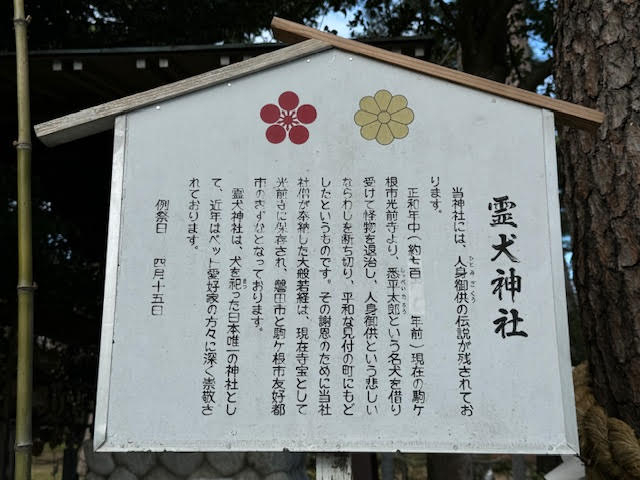 霊犬神社
当神社には、人身御供の伝説が残されてお
ひとみごくう
ります。
正和年中（約七百　　年前）現在の駒ケ
根市光前寺より、悉平太郎という名犬を借り
しっぺいたろう
受けて怪物を退治し、人身御供という悲しい
ならわしを断ち切り、平和な見付の町にもど
したというものです。その謝恩のために当社
社僧が奉納した大般若経は、現在寺宝として
光前寺に保存され、磐田市と駒ケ根市友好都
市のきずなとなっております。
霊犬神社は、犬を祀った日本唯一の神社とし
まつ
て、近年はペット愛好家の方々に深く崇敬さ
れております。
例祭日　四月十五日